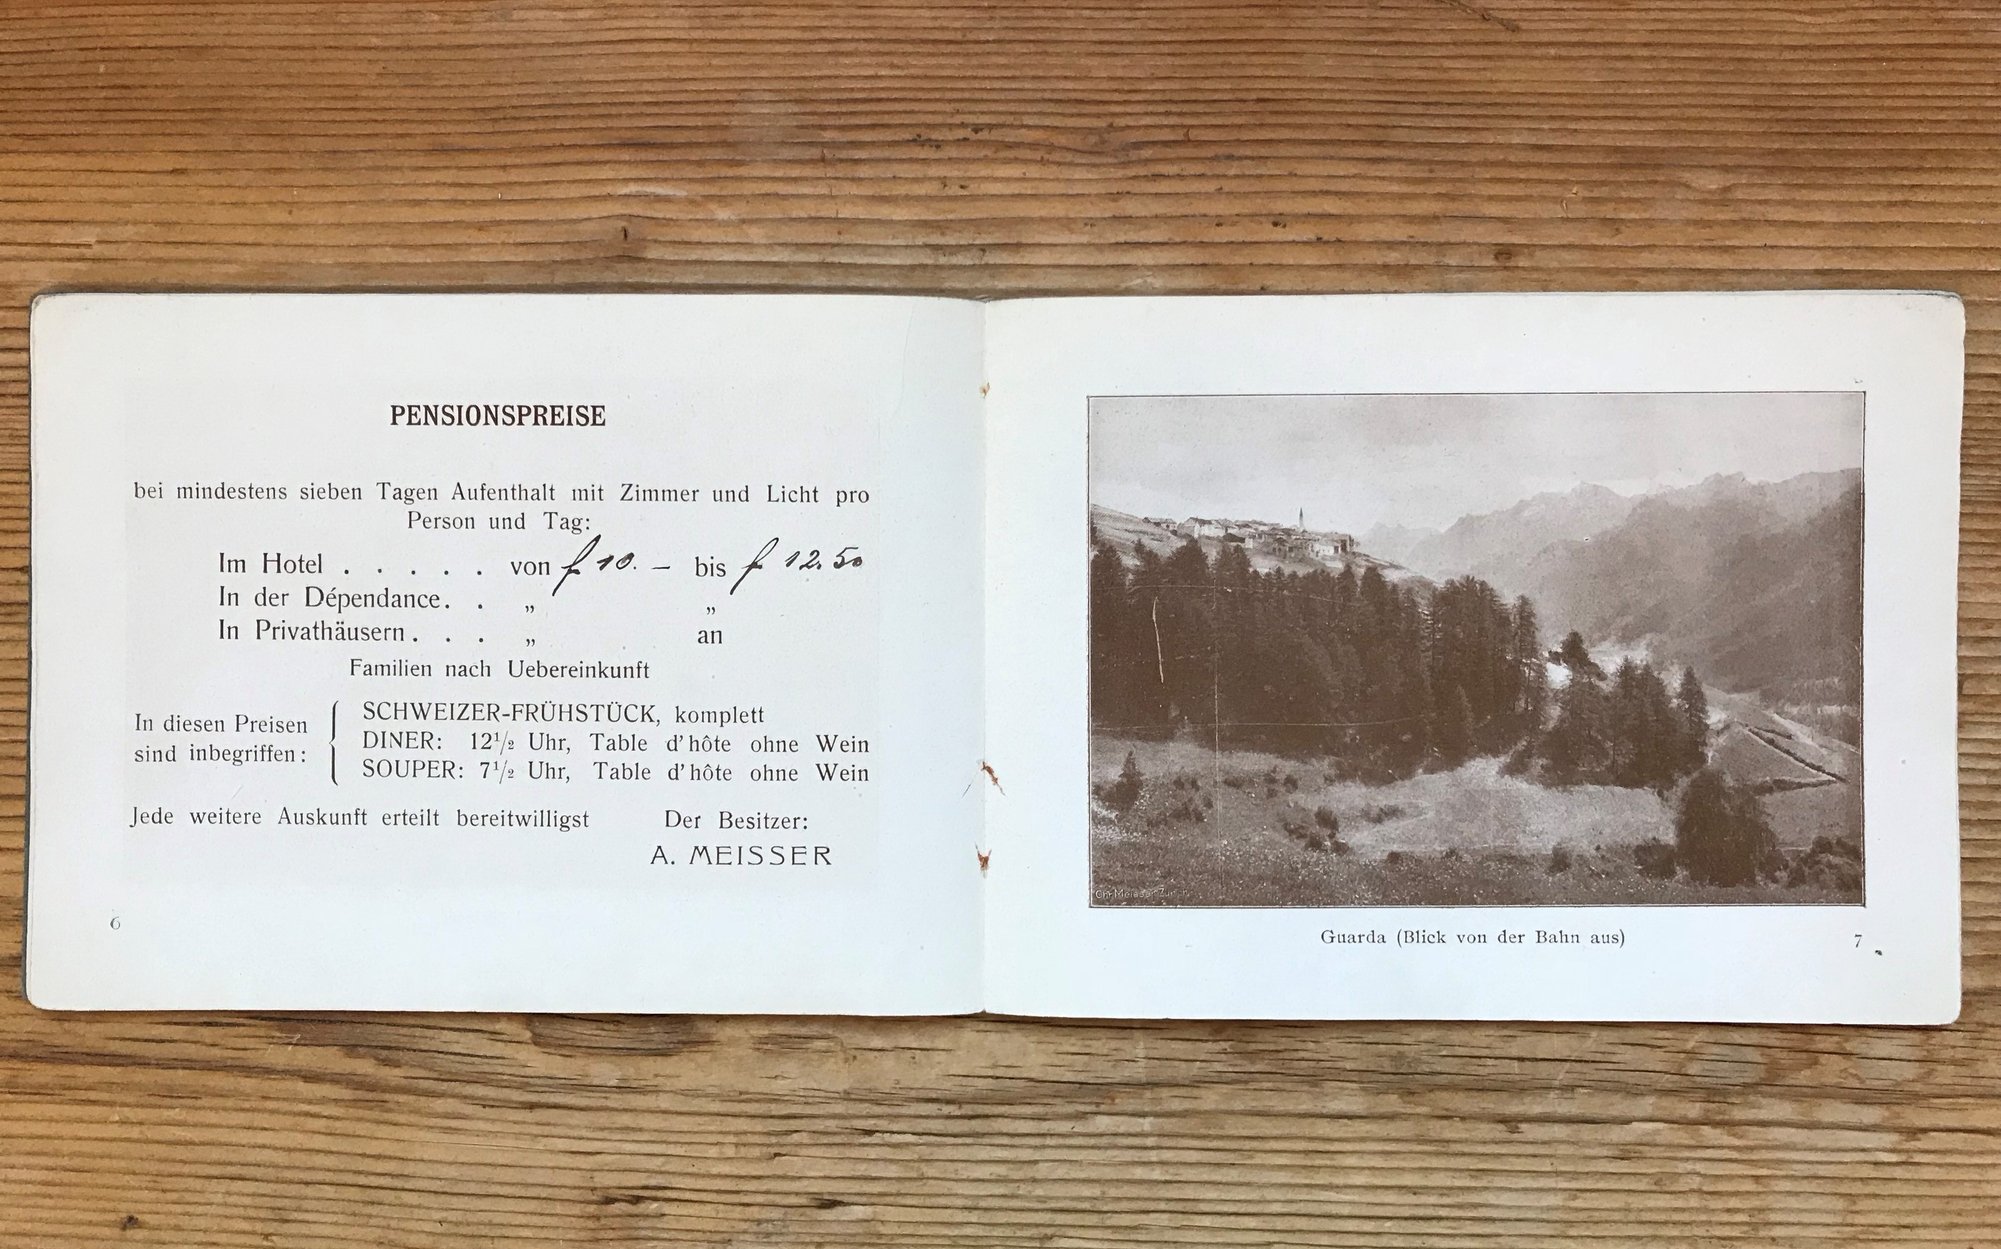 PENSIONSPREISE
bei mindestens sieben Tagen Aufenthalt mit Zimmer und Licht pro
Person und Tag:
Im Hotel . . . . . von f 10. – bis f 12.50
In der Dépendance. . „ „
In Privathäusern . . . „ an
Familien nach Uebereinkunft
In diesen Preisen
sind inbegriffen:
SCHWEIZER-FRÜHSTÜCK, komplett
DINER: 12½ Uhr, Table d'hôte ohne Wein
SOUPER: 7½ Uhr, Table d'hôte ohne Wein
Jede weitere Auskunft erteilt bereitwilligst
Der Besitzer:
A. MEISSER
6
Ch. Meisser Zürich
Guarda (Blick von der Bahn aus)
7